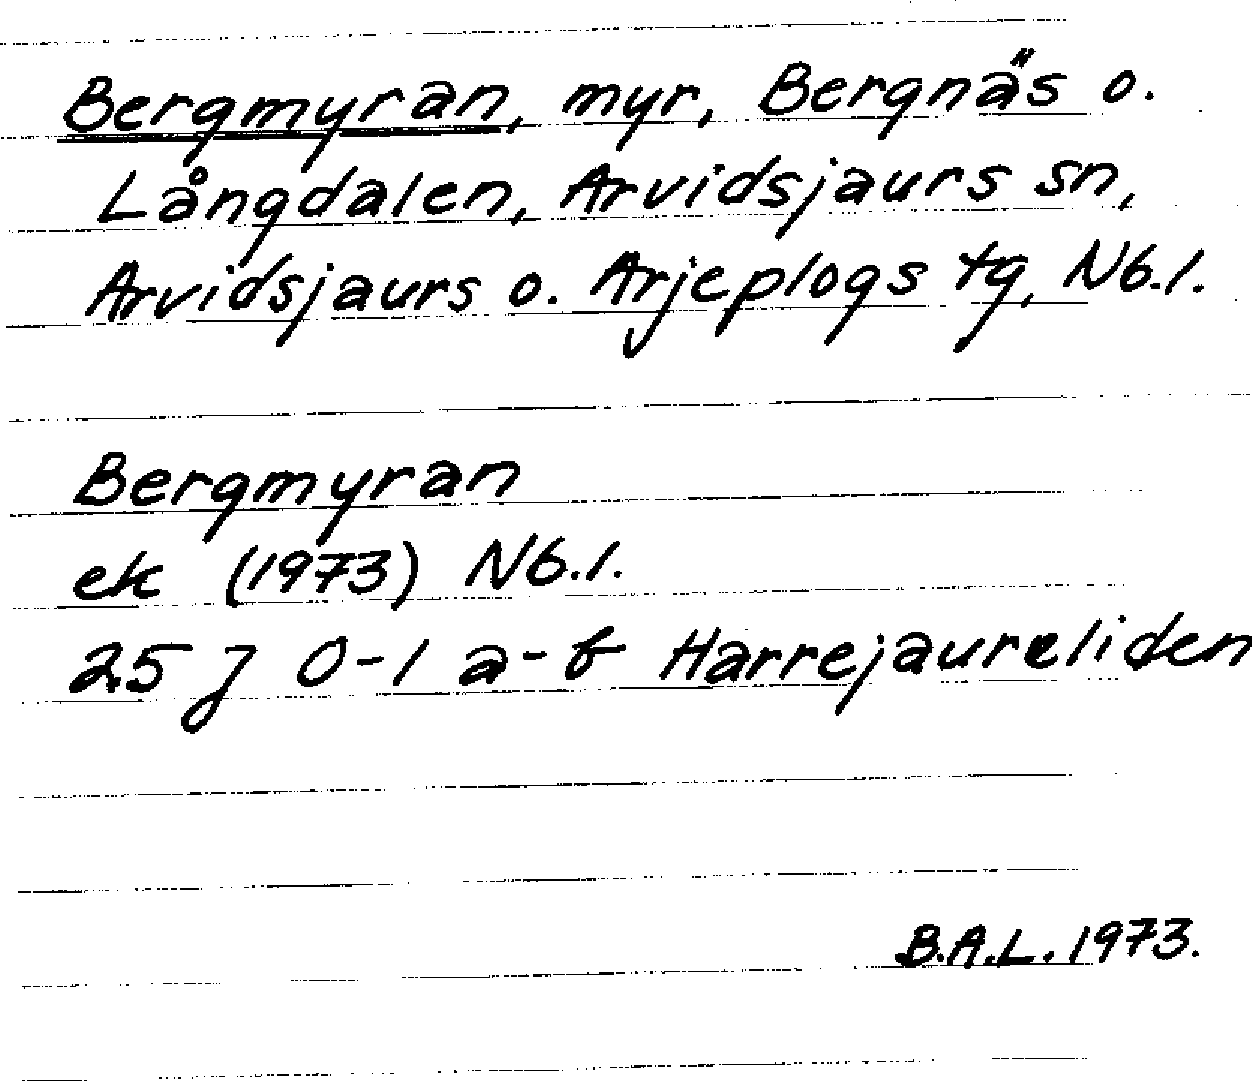 Bergmyran, myr, Bergnäs o.
Långdalen, Arvidsjaurs sn,
Arvidsjaurs o. Arjeplogs tg, Nb.l.
Bergmyran
ek (1973) Nb.l.
25 J 0-1 a-b Harrejaureliden
B.A.L. 1973.